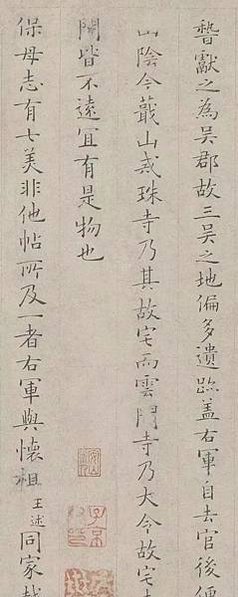 獻之為吳郡故三吳之地偏多遺跡蓋右軍自去官後便
山陰今蕺山戒珠寺乃其故宅而雲門寺乃大令故宅
皆不遠宜有是物也
保母志有七美非他帖所及一者右軍與懷祖王述同家